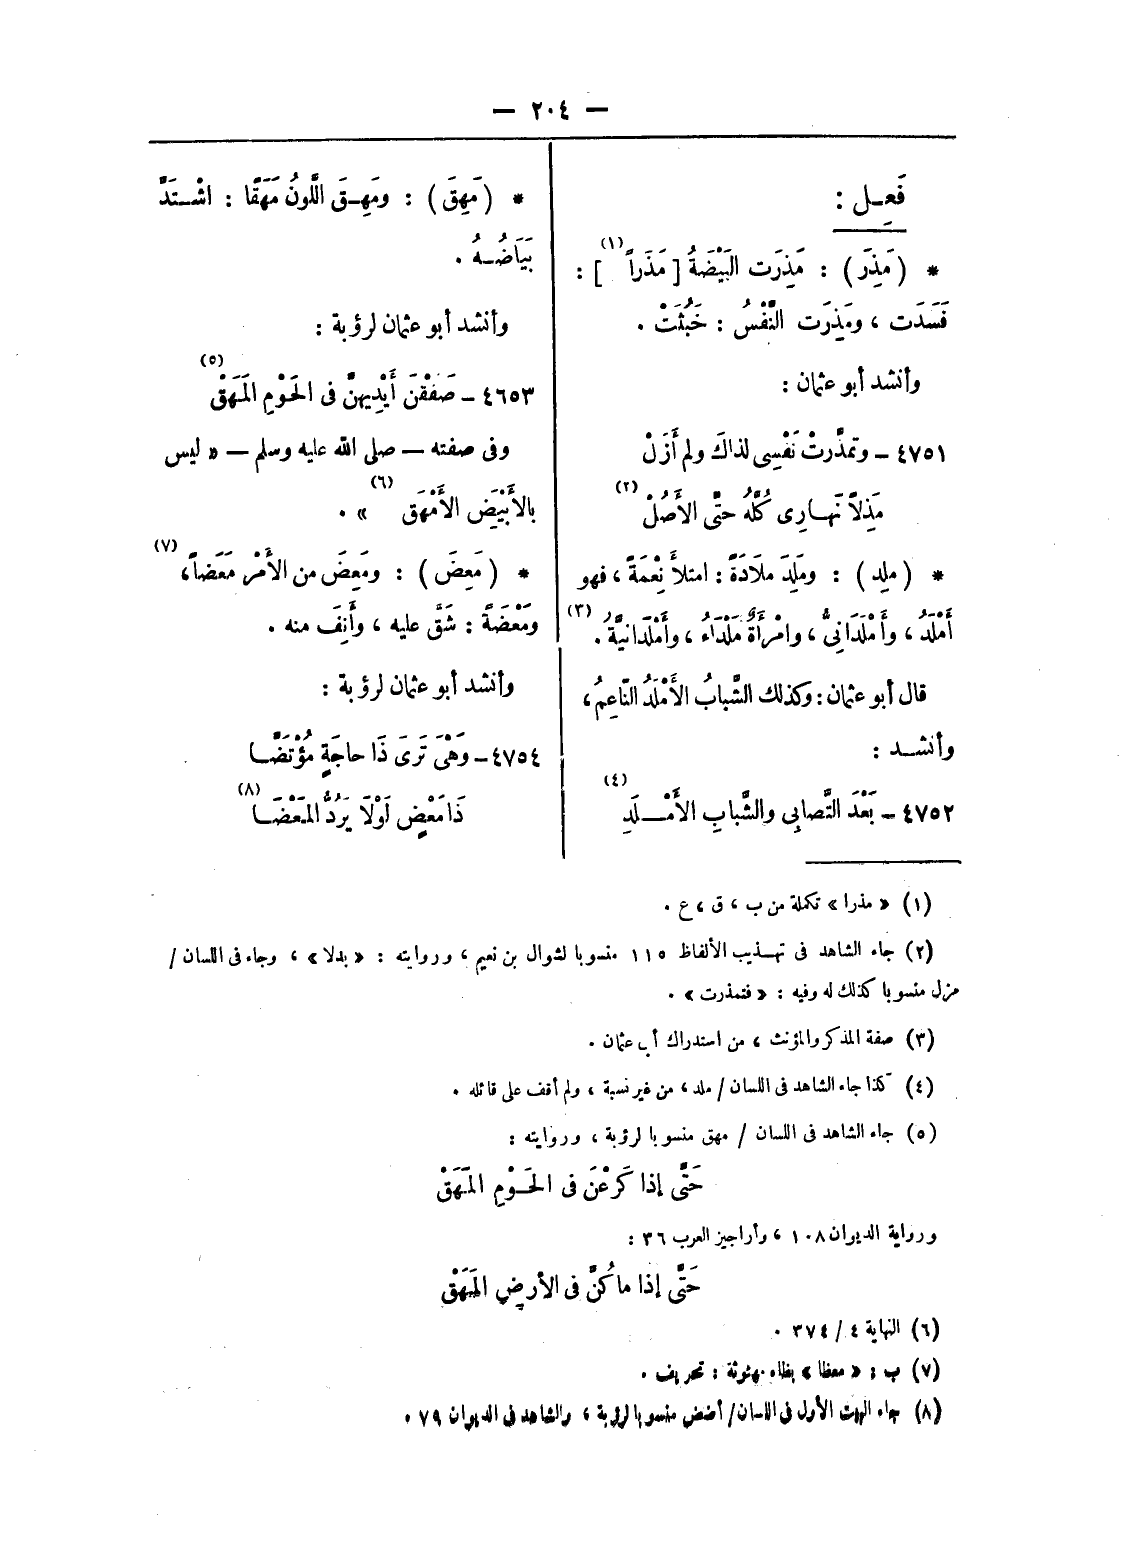 — ٢٠٤ —
فَعِـل :
* (مَذِرَ) : مَذِرَت البَيْضَةُ [ مَذَراً (١) ] :
فَسَدَت ، ومَذِرَت النَّفْسُ : خَبُثَتْ .
وأنشد أبو عثمان :
٤٧٥١ – وتمذَّرتْ نَفْسِى لذاكَ ولم أَزَلْ
مَذِلاً نَهـارِى كُلَّهُ حتَّى الأَصُلْ (٢)
* (ملِد) : ومَلِدَ ملَادَةً : امتلأَ نِعْمَةً ، فهو
أَمْلَدُ ، وأَمْلَدَانِىٌّ ، وامْرأَةٌ مَلْدَاءُ ، وأَمْلَدَانيَّةٌ (٣) .
قال أبو عثمان : وكذلك الشَّبابُ الأَمْلَدُ النَّاعِمُ ،
وأنشـد :
٤٧٥٢ – بَعْدَ التَّصابِى والشَّبابِ الأَمْـلَدِ (٤)
* (مَهِقَ) : ومَهِـقَ اللَّونُ مَهَقًا : اشْـتَدَّ
بَيَاضُـهُ .
وأنشد أبو عثمان لرؤبة :
٤٦٥٣ – صَفَقْنَ أَيْدِيهنَّ فى الحَوْمِ المَهَقْ (٥)
وفى صفته – صلى الله عليه وسلم – « ليس
بالأَبْيَضِ الأَمْهَق (٦) » .
* (مَعِضَ) : ومَعِضَ من الأَمْرِ مَعَضاً (٧) ،
ومَعْضَةً : شَقَّ عليه ، وأَنِفَ منه .
وأنشد أبو عثمان لرؤبة :
٤٧٥٤ – وَهْىَ تَرَى ذَا حاجَةٍ مُؤْتَضَّـا
ذَا مَعْضٍ لَوْلَا يَرُدُّ المَعْضَـا (٨)
(١) « مذرا » تكملة من ب ، ق ، ع .
(٢) جاء الشاهد فى تهـذيب الألفاظ ١١٥ منسوبا لشوال بن نعيم ، وروايته : « بدلا » ، وجاء فى اللسان /
مزل منسوبا كذلك له وفيه : « فتمذرت » .
(٣) صفة المذكر والمؤنث ، من استدراك أبى عثمان .
(٤) كذا جاء الشاهد فى اللسان / ملد ، من غير نسبة ، ولم أقف على قائله .
(٥) جاء الشاهد فى اللسان / مهق منسوبا لرؤبة ، وروايته :
حَتَّى إذا كَرَعْنَ فى الحَـوْمِ المَهَقْ
ورواية الديوان ١٠٨ ، وأراجيز العرب ٣٦ :
حَتَّى إذا ما كُنَّ فى الأرضِ المَهَقْ
(٦) النهاية ٤ / ٣٧٤ .
(٧) ب : « معظا » بظاء مثوثة : تحريف .
(٨) جاء البيت الأول فى اللسان / أضض منسوبا لرؤبة ، والشاهد فى الديوان ٧٩ .